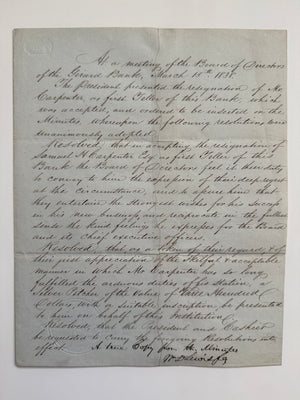 At a meeting of the Board of Directors
of the Girard Bank, March 15th 1838.
The President presented the resignation of Mr
Carpenter, as first Teller of this Bank, which
was accepted, and ordered to be inserted on the
Minutes, whereupon the following resolutions were
unanimously adopted.
Resolved, that in accepting the resignation of
Samuel H Carpenter Esq as first Teller of this
Bank the Board of Directors feel it their duty
to convey to him the expression of their regret
at the circumstance, and to assure him that
they entertain the strongest wishes for his success
in his new business, and reciprocate in the fullest
sense the kind feelings he expresses for the Board
and its Chief executive officers.
Resolved, that as a token of their regard, & of
their just appreciation of the skilful & acceptable
manner in which Mr Carpenter has so long
fulfilled the arduous duties of his station, a
Silver Pitcher of the value of Three Hundred
Dollars, with a suitable inscription, be presented
to him on behalf of this Institution.
Resolved, that the President and Cashier
be requested to carry the foregoing Resolutions into
effect. A true Copy from the Minutes
Wm D Lewis